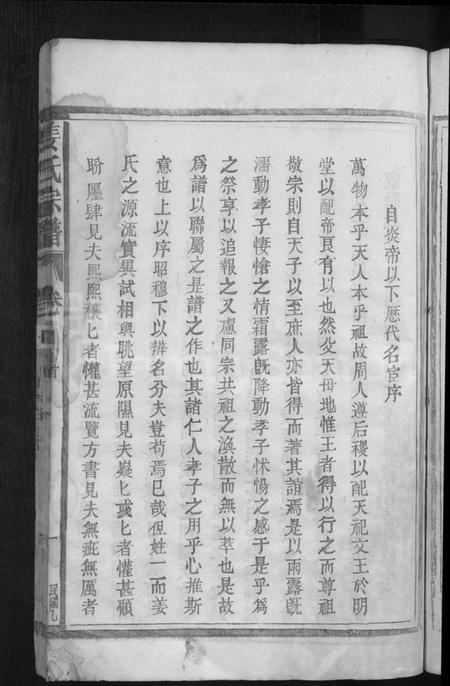 自炎帝以下歷代名宦序
萬物本乎天人本乎祖故周人遵后稷以配天祀文王於明
堂以配帝良有以也然父天母地惟王者得以行之而尊祖
敬宗則自天子以至庶人亦皆得而著其誼焉是以雨露既
濡動孝子悽愴之情霜露既降動孝子怵惕之感于是乎爲
之祭享以追報之又慮同宗共祖之渙散而無以萃也是故
爲譜以聯屬之是譜之作也其諸仁人孝子之用乎心推斯
意也上以序昭穆下以辨名分夫豈苟焉巳哉但姓一而姜
氏之源流實異試相與眺望原隰見夫嶷匕彧匕者懽甚顧
盼廛肆見夫熙熙穰匕者懽甚流覽方書見夫無疵無厲者
姜氏宗譜
卷
一